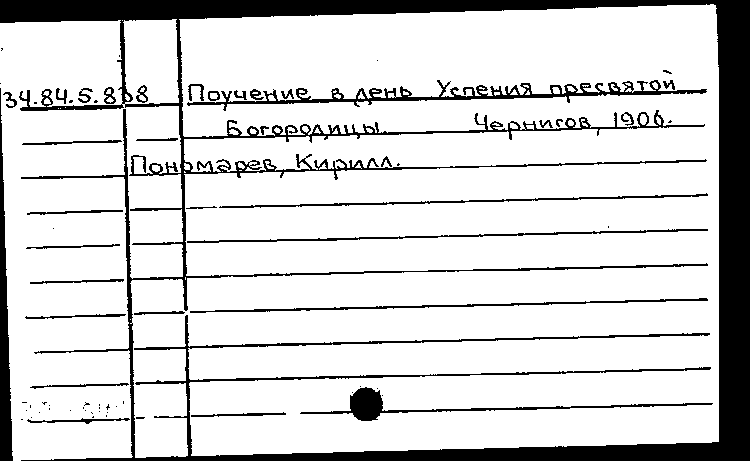 34.84.5.838 Поучение в день Успения пресвятой
Богородицы. Чернигов, 1906.
Пономарев, Кирилл.